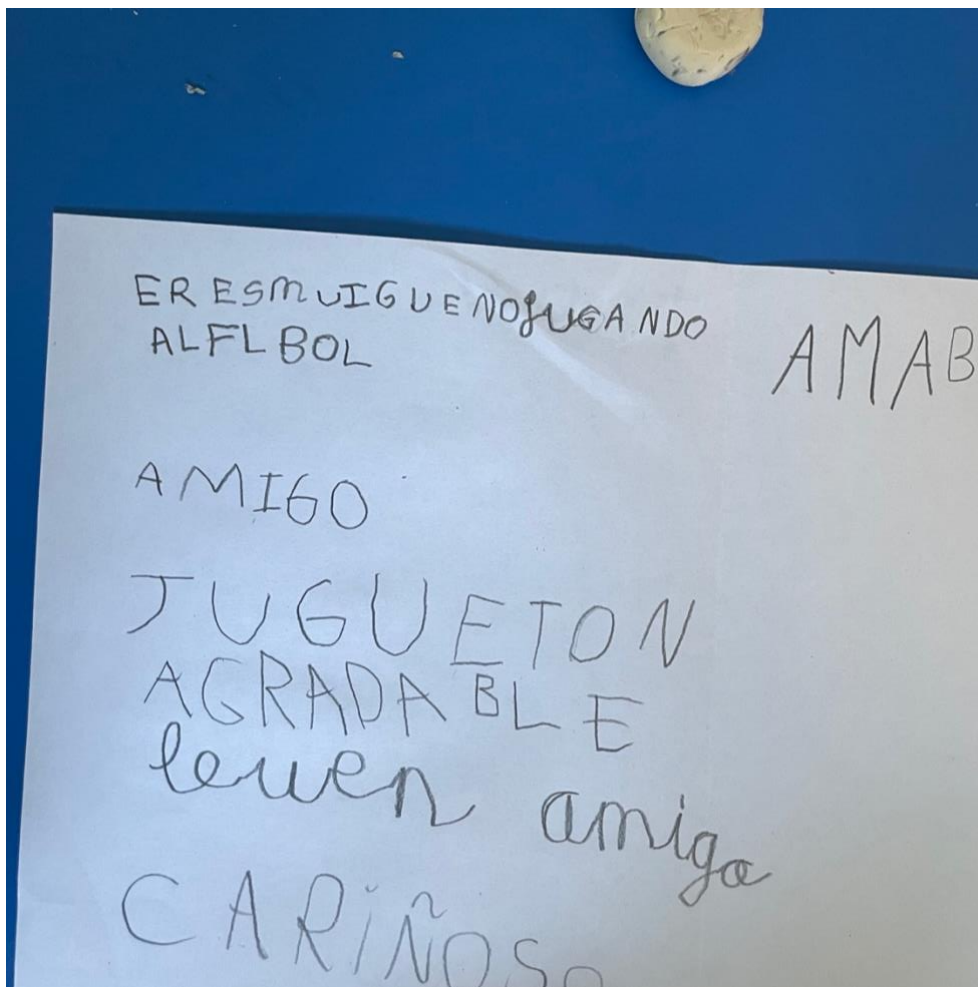 ERESMUIGUENOJUGANDO
ALFLBOL
AMAB
AMIGO
JUGUETON
AGRADABLE
leuen amigo
CARIÑOSO